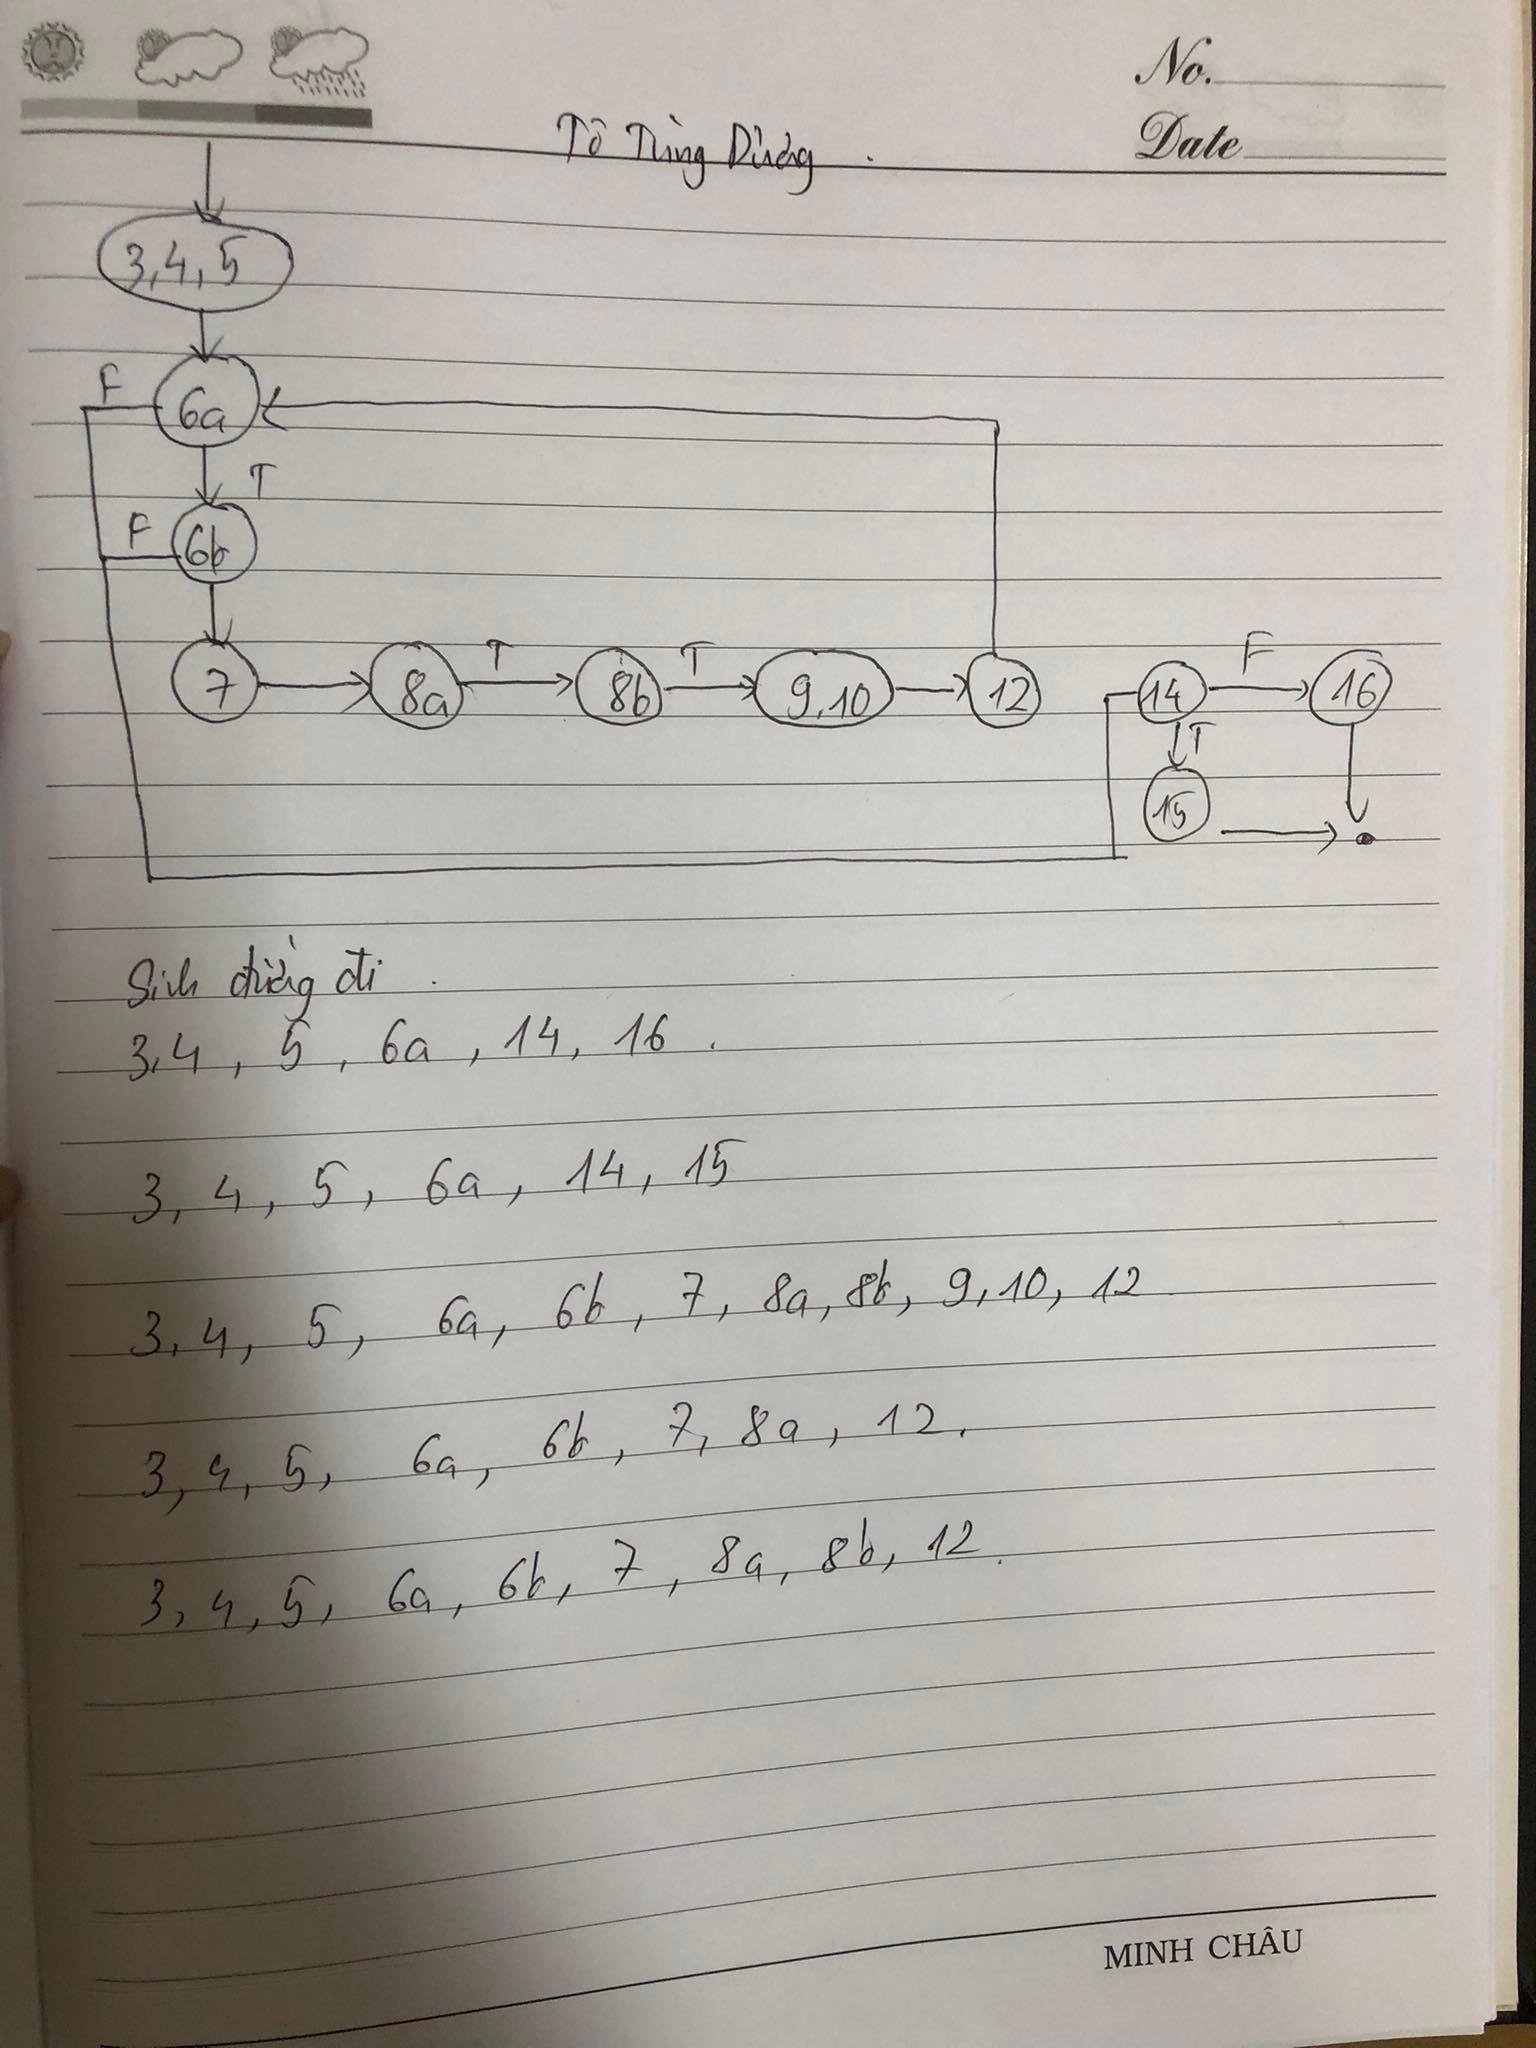 No.
Date
Tô Tùng Dương .
3,4,5
F
6a
T
F
6b
7
8a
T
8b
T
9,10
12
14
F
16
T
15
Sinh đường đi .
3,4 , 5 , 6a , 14, 16 .
3, 4, 5, 6a, 14, 15
3, 4, 5, 6a, 6b, 7, 8a, 8b, 9, 10, 12
3, 4, 5, 6a, 6b, 7, 8a, 12.
3, 4, 5, 6a, 6b, 7, 8a, 8b, 12.
MINH CHÂU